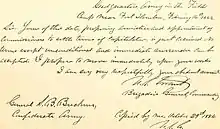 Head Quarters, Army in the Field
Camp near Fort Donelson, February 16th 1862
Sir: Yours of this date proposing armistice and appointment of
Commissioners to settle terms of Capitulation is just received. No
terms except unconditional and immediate surrender can be
accepted. I propose to move immediately upon your works
I am very respectfully your obedient servant
U.S. Grant
Brigadier General
General S. B. Buckner,
Confederate Army